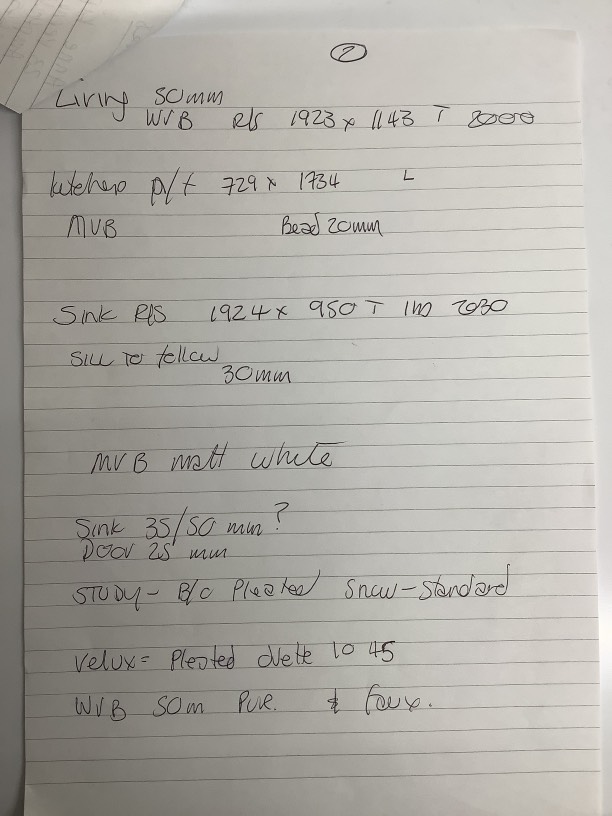 2
Living 50mm
WVB R/S 1923 x 1143 T 2000
p/t 729 x 1734 L
MVB Bead 20mm
Sink R/S 1924 x 950 T 2030
Sill to follow
30mm
MVB matt white
Sink 35/50 mm?
Door 25 mm
STUDY - B/C Pleated Snow - Standard
Velux = Pleated duette 10 45
WVB 50m Pure. & faux.